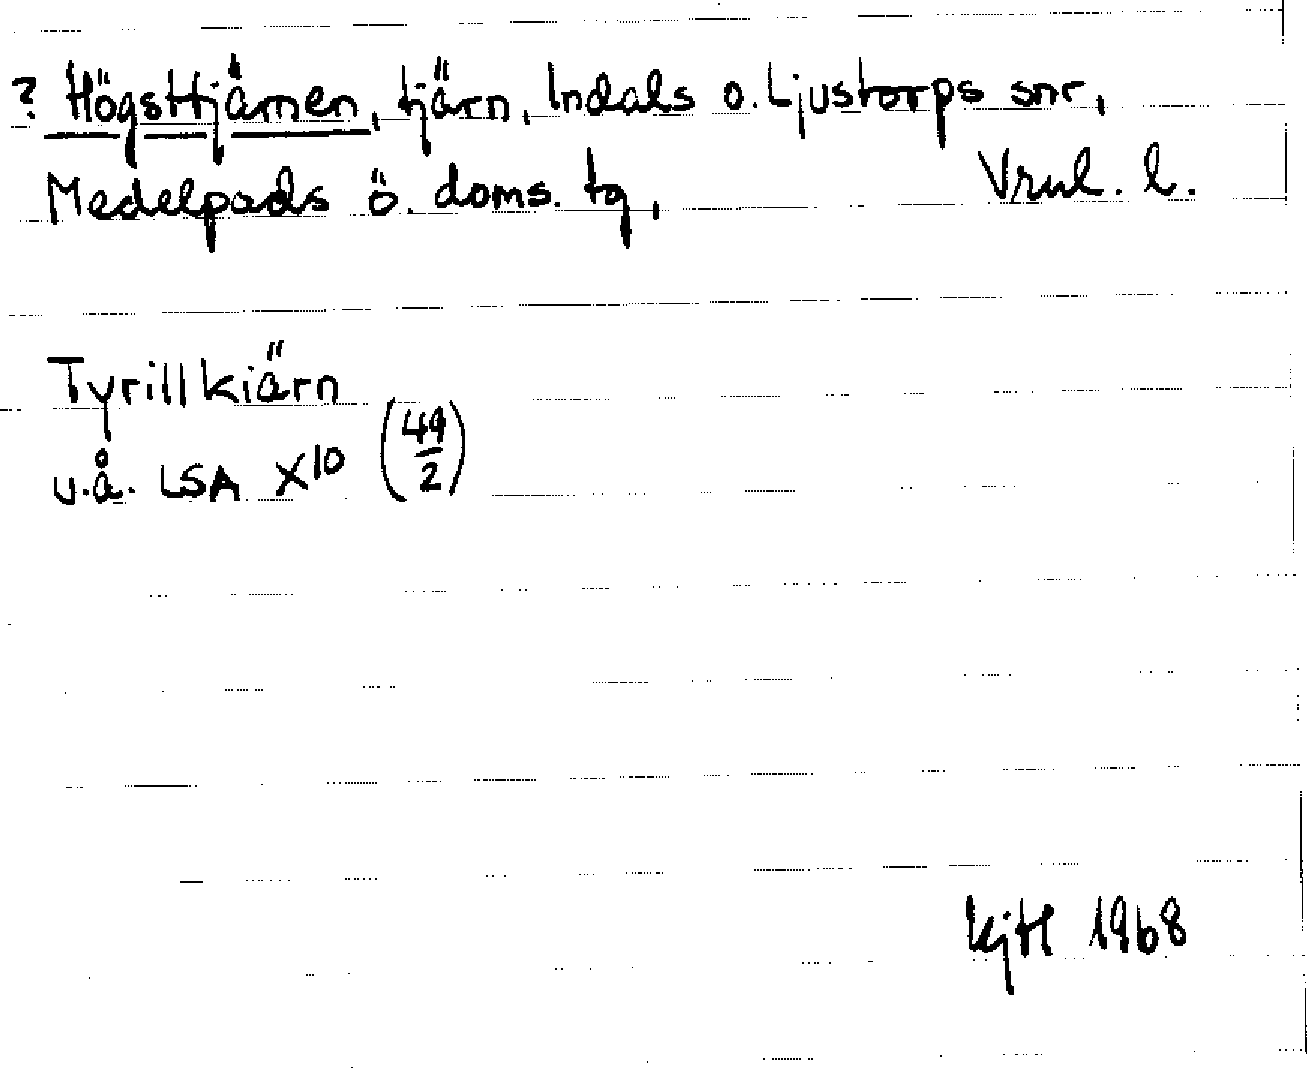 ? Högsttjärnen, tjärn, Indals o. Ljustorps snr,
Medelpads ö. doms. tg, Vrnl. l.
Tyrillkiärn
u.å. LSA X10 (49/2)
KjH 1968